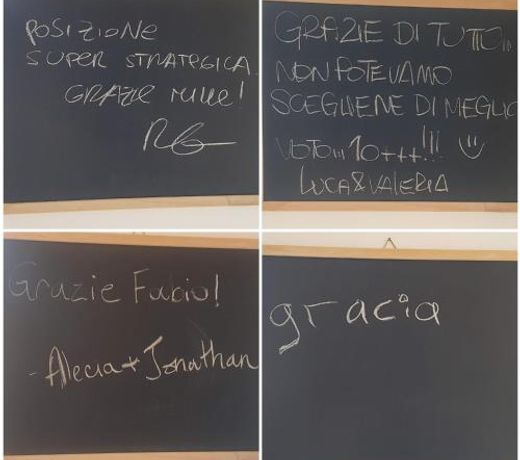 POSIZIONE
SUPER STRATEGICA.
GRAZIE MILLE!
GRAZIE DI TUTTO...
NON POTEVAMO
SCEGLIENE DI MEGLIO
VOTO... 10+++!!!
LUCA&VALERIA
Grazie Fabio!
- Alecia + Jonathan
gracia